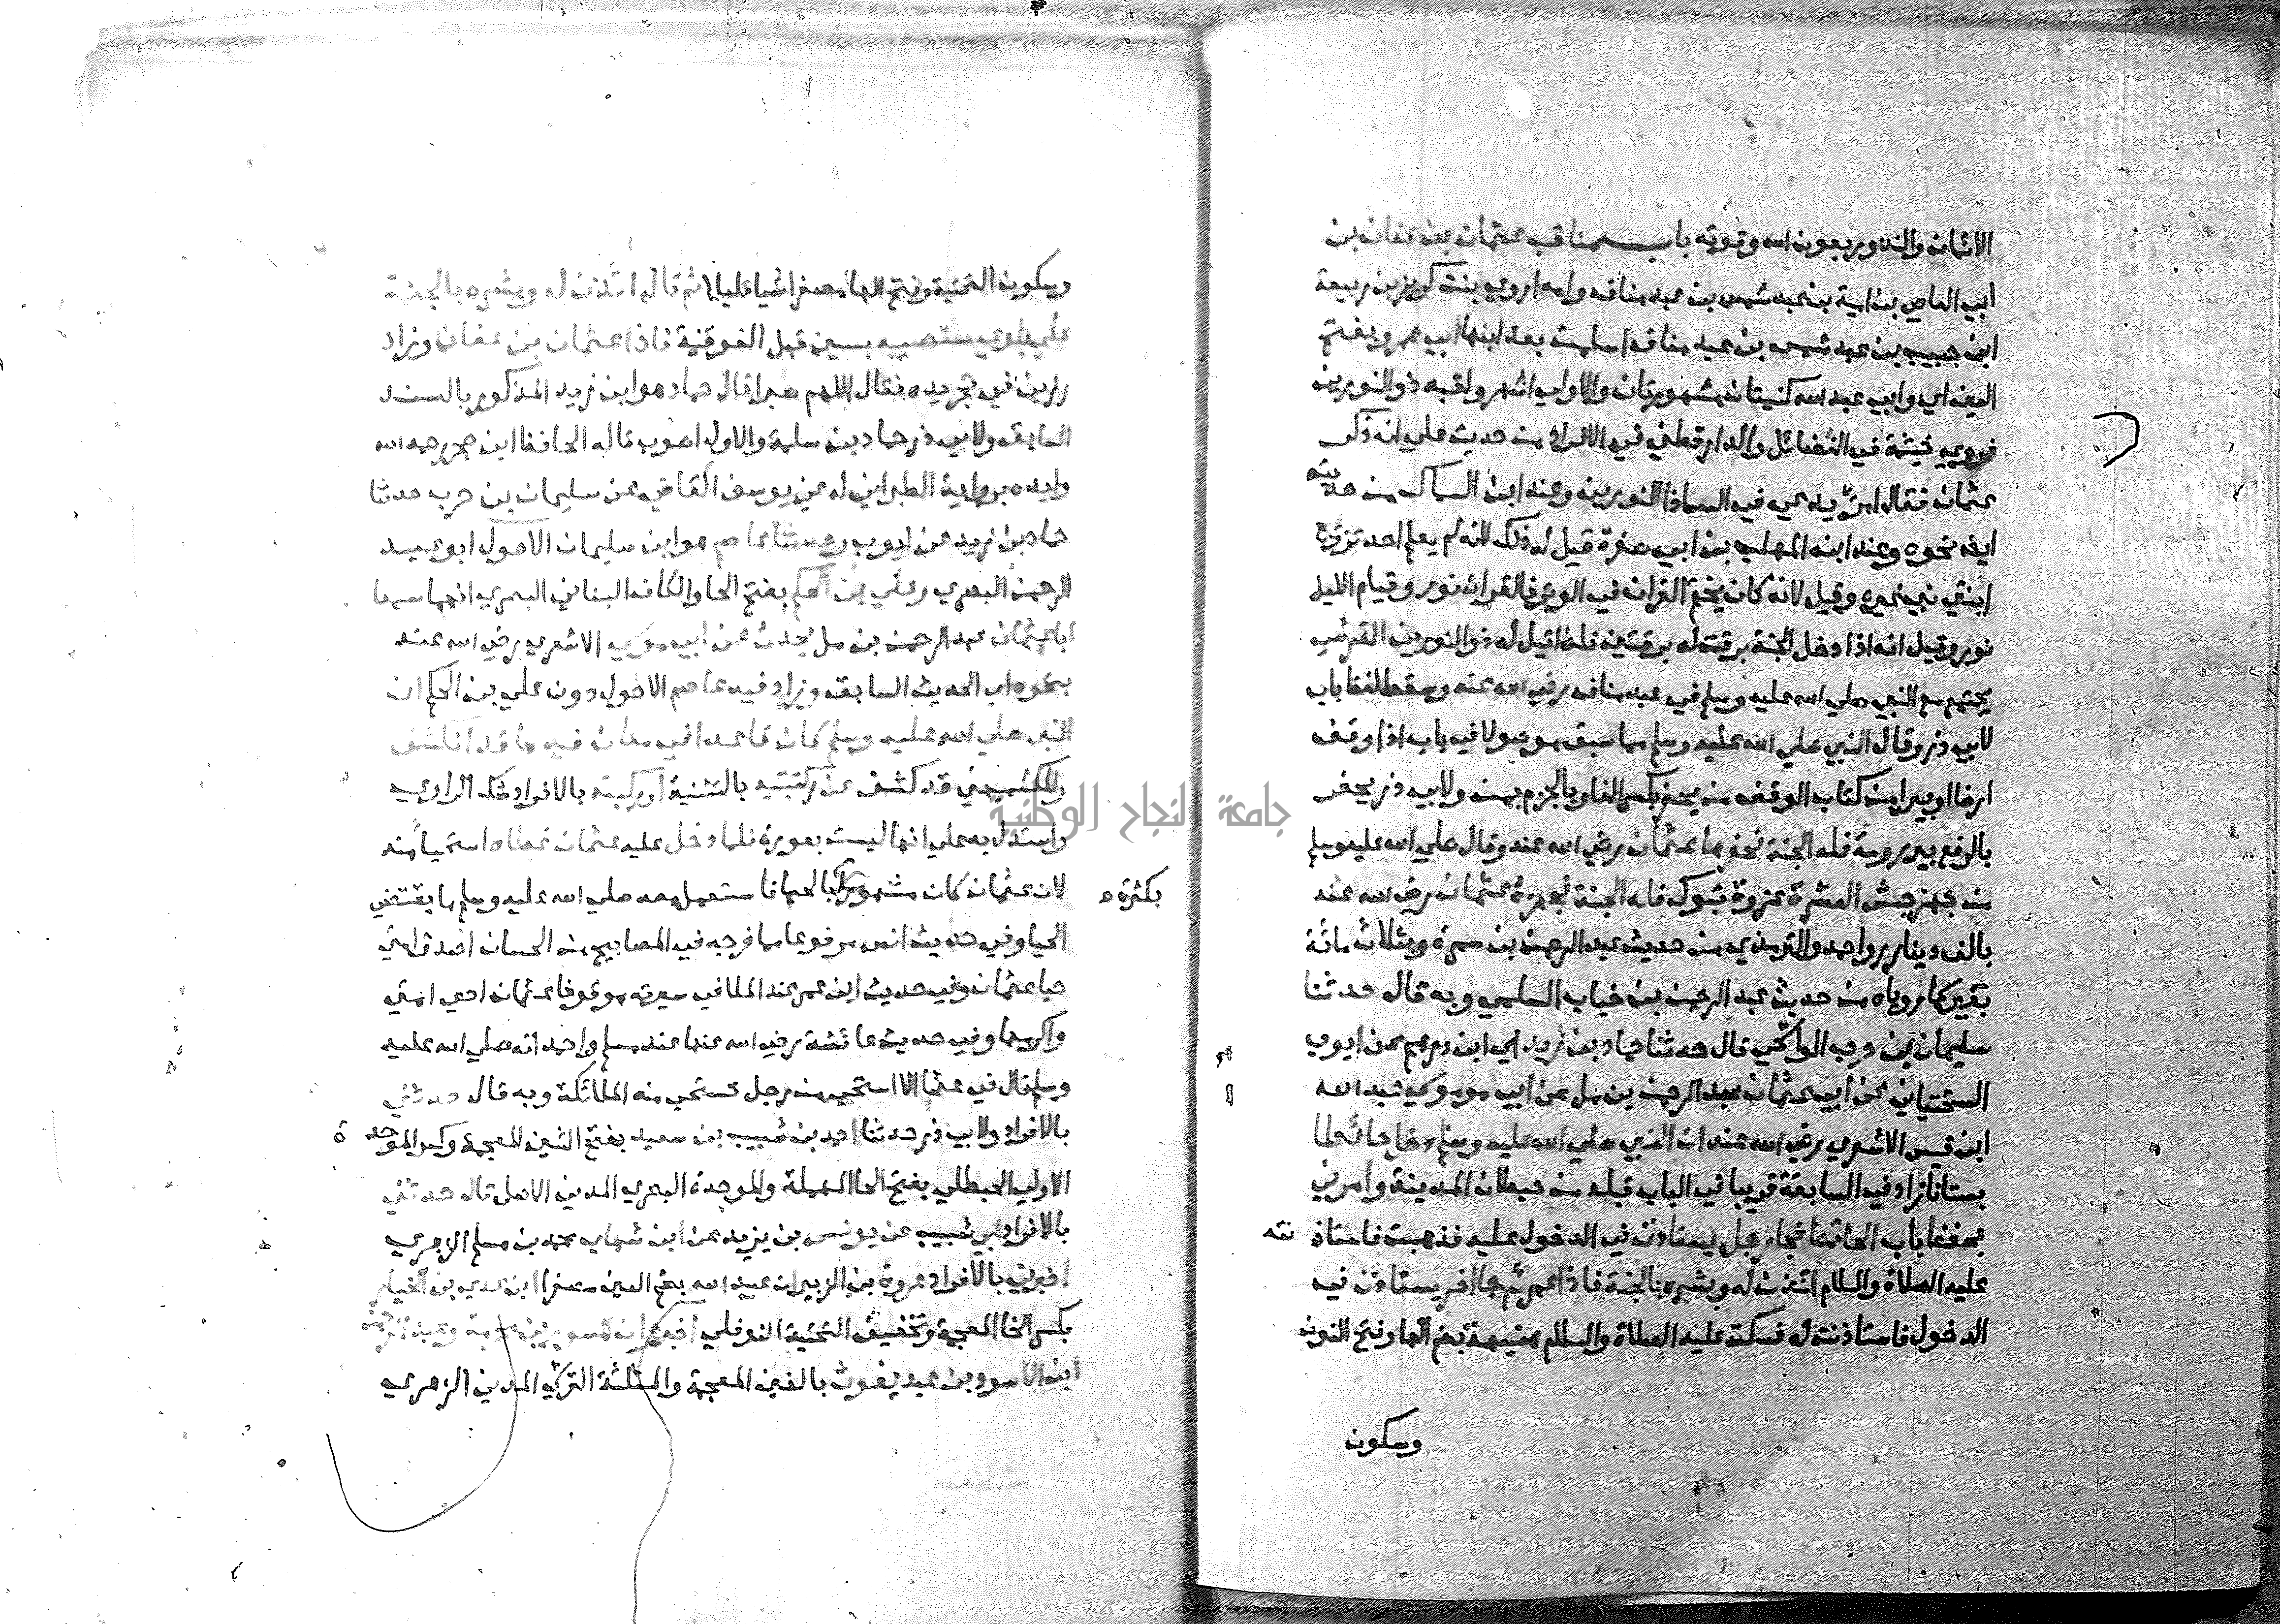 الايمان والنذور بعون الله وقوته باب مناقب عثمان بن عفان بن
ابي العاص بن امية بن عبد شمس بن عبد مناف وامه اروي بنت كريز بن ربيعة
ابن حبيب بن عبد شمس بن عبد مناف اسلمت بعد ابنها ابي عمرو بفتح
العين اي وابي عبد الله كنيتان مشهورتان والاولي اشهر ولقبه ذو النورين
فروي خيثمة في الفضائل والدارقطني في الافراد من حديث علي انه ذكر
عثمان فقال امرؤ يدعي في السما ذا النورين وعند ابن السماك من حديثه
ايضه نحوه وعند ابنه المهلب بن ابي صفرة قيل له ذلك لانه لم يعلم احد تزوج
ابنتي نبي غيره وقيل لانه كان يختم القران في الوتر فالقران نور وقيام الليل
نور وقيل انه اذا دخل الجنة برقت له برقتين فلذا قيل له ذو النورين القرشي
يجتمع مع النبي صلي الله عليه وسلم في عبد مناف رضي الله عنه وسقط لفظ باب
لابي ذر وقال النبي صلي الله عليه وسلم مما سبق موصولا في باب اذا وقف
ارضا او بيرا من كتاب الوقف من يحفر بكسر الفا وبالجزم بمن ولابي ذر يحفر
بالرفع بير رومة فله الجنة فحفرها عثمان رضي الله عنه وقال صلي الله عليه وسلم
من جهز جيش العسرة غزوة تبوك فله الجنة فجهزه عثمان رضي الله عنه
بالف دينار رواه احمد والترمذي من حديث عبد الرحمن بن سمرة وبثلاث مائة
بعير كما روياه من حديث عبد الرحمن بن خباب السلمي وبه قال حدثنا
سليمان بن حرب الواشحي قال حدثنا حماد بن زيد اي ابن درهم عن ايوب
السختياني عن ابي عثمان عبد الرحمن بن مل عن ابي موسي عبد الله
ابن قيس الاشعري رضي الله عنه ان النبي صلي الله عليه وسلم دخل حائطا
بستانا زاد في السابقة قريبا في الباب قبله من حيطان المدينة وامرني
بحفظ باب الحائط فجا رجل يستاذن في الدخول عليه فذهبت فاستاذنته
عليه الصلاة والسلام ائذن له وبشره بالجنة فاذا عمر ثم جا اخر يستاذن فيه
الدخول فاستاذنته له فسكت عليه الصلاة والسلام هنيهة بضم الها وفتح النون
وسكون
وسكون التحتية وفتح الها مصغرا شيا قليلا ثم قال ائذن له وبشره بالجنة
علي بلوي ستصيبه بسين قبل الفوقية فاذا عثمان بن عفان وزاد
رزين في تجريده فقال اللهم صبرا قال حماد هو ابن زيد المذكور بالسند
السابق ولابي ذر حماد بن سلمة والاول اصوب قاله الحافظ ابن حجر رحمه الله
وايده برواية الطبراني له عن يوسف القاضي عن سليمان بن حرب حدثنا
حماد بن زيد عن ايوب وحدثنا عاصم هو ابن سليمان الاحول ابو عبد
الرحمن البصري وعلي بن الحكم بفتح الحا والكاف البناني البصري انهما سمعا
ابا عثمان عبد الرحمن بن مل يحدث عن ابي موسي الاشعري رضي الله عنه
بنحوه اي الحديث السابق وزاد فيه عاصم الاحول دون علي بن الحكم ان
النبي صلي الله عليه وسلم كان قاعدا في مكان فيه ما قد انكشف
وللكشميهني قد كشف عن ركبتيه بالتثنية او ركبته بالافراد شك الراوي
واستدل به علي انها ليست بعورة فلما دخل عليه عثمان غطاها استحيا منه
لان عثمان كان مشهورا بكثرة الحيا فاستعمل معه صلي الله عليه وسلم ما يقتضي
بكثرة
الحيا وفي حديث انس مرفوعا مما خرجه في المصابيح من الحسان اصدق امتي
حيا عثمان وفي حديث ابن عمر عند الملا في سيرته موقوفا عثمان احي امتي
واكرمها وفي حديث عائشة رضي الله عنها عند مسلم واحمد انه صلي الله عليه
وسلم قال في عثمان الا استحي من رجل تستحي منه الملائكة وبه قال حدثني
بالافراد ولابي ذر حدثنا احمد بن شبيب بن سعيد بفتح الشين المعجمة وكسر الموحدة
الاولي الحبطي بفتح الحا المهملة والموحدة البصري المدني الاصل قال حدثني
بالافراد ابي شبيب عن يونس بن يزيد عن ابن شهاب محمد بن مسلم الزهري
اخبرني بالافراد عروة بن الزبير ان عبيد الله بضم العين مصغرا ابن عدي بن الخيار
بكسر الخا المعجمة وتخفيف التحتية النوفلي اخبره ان المسور بن مخرمة وعبد الرحمن
ابن الاسود بن عبد يغوث بالغين المعجمة والمثلثة القرشي المدني الزهري